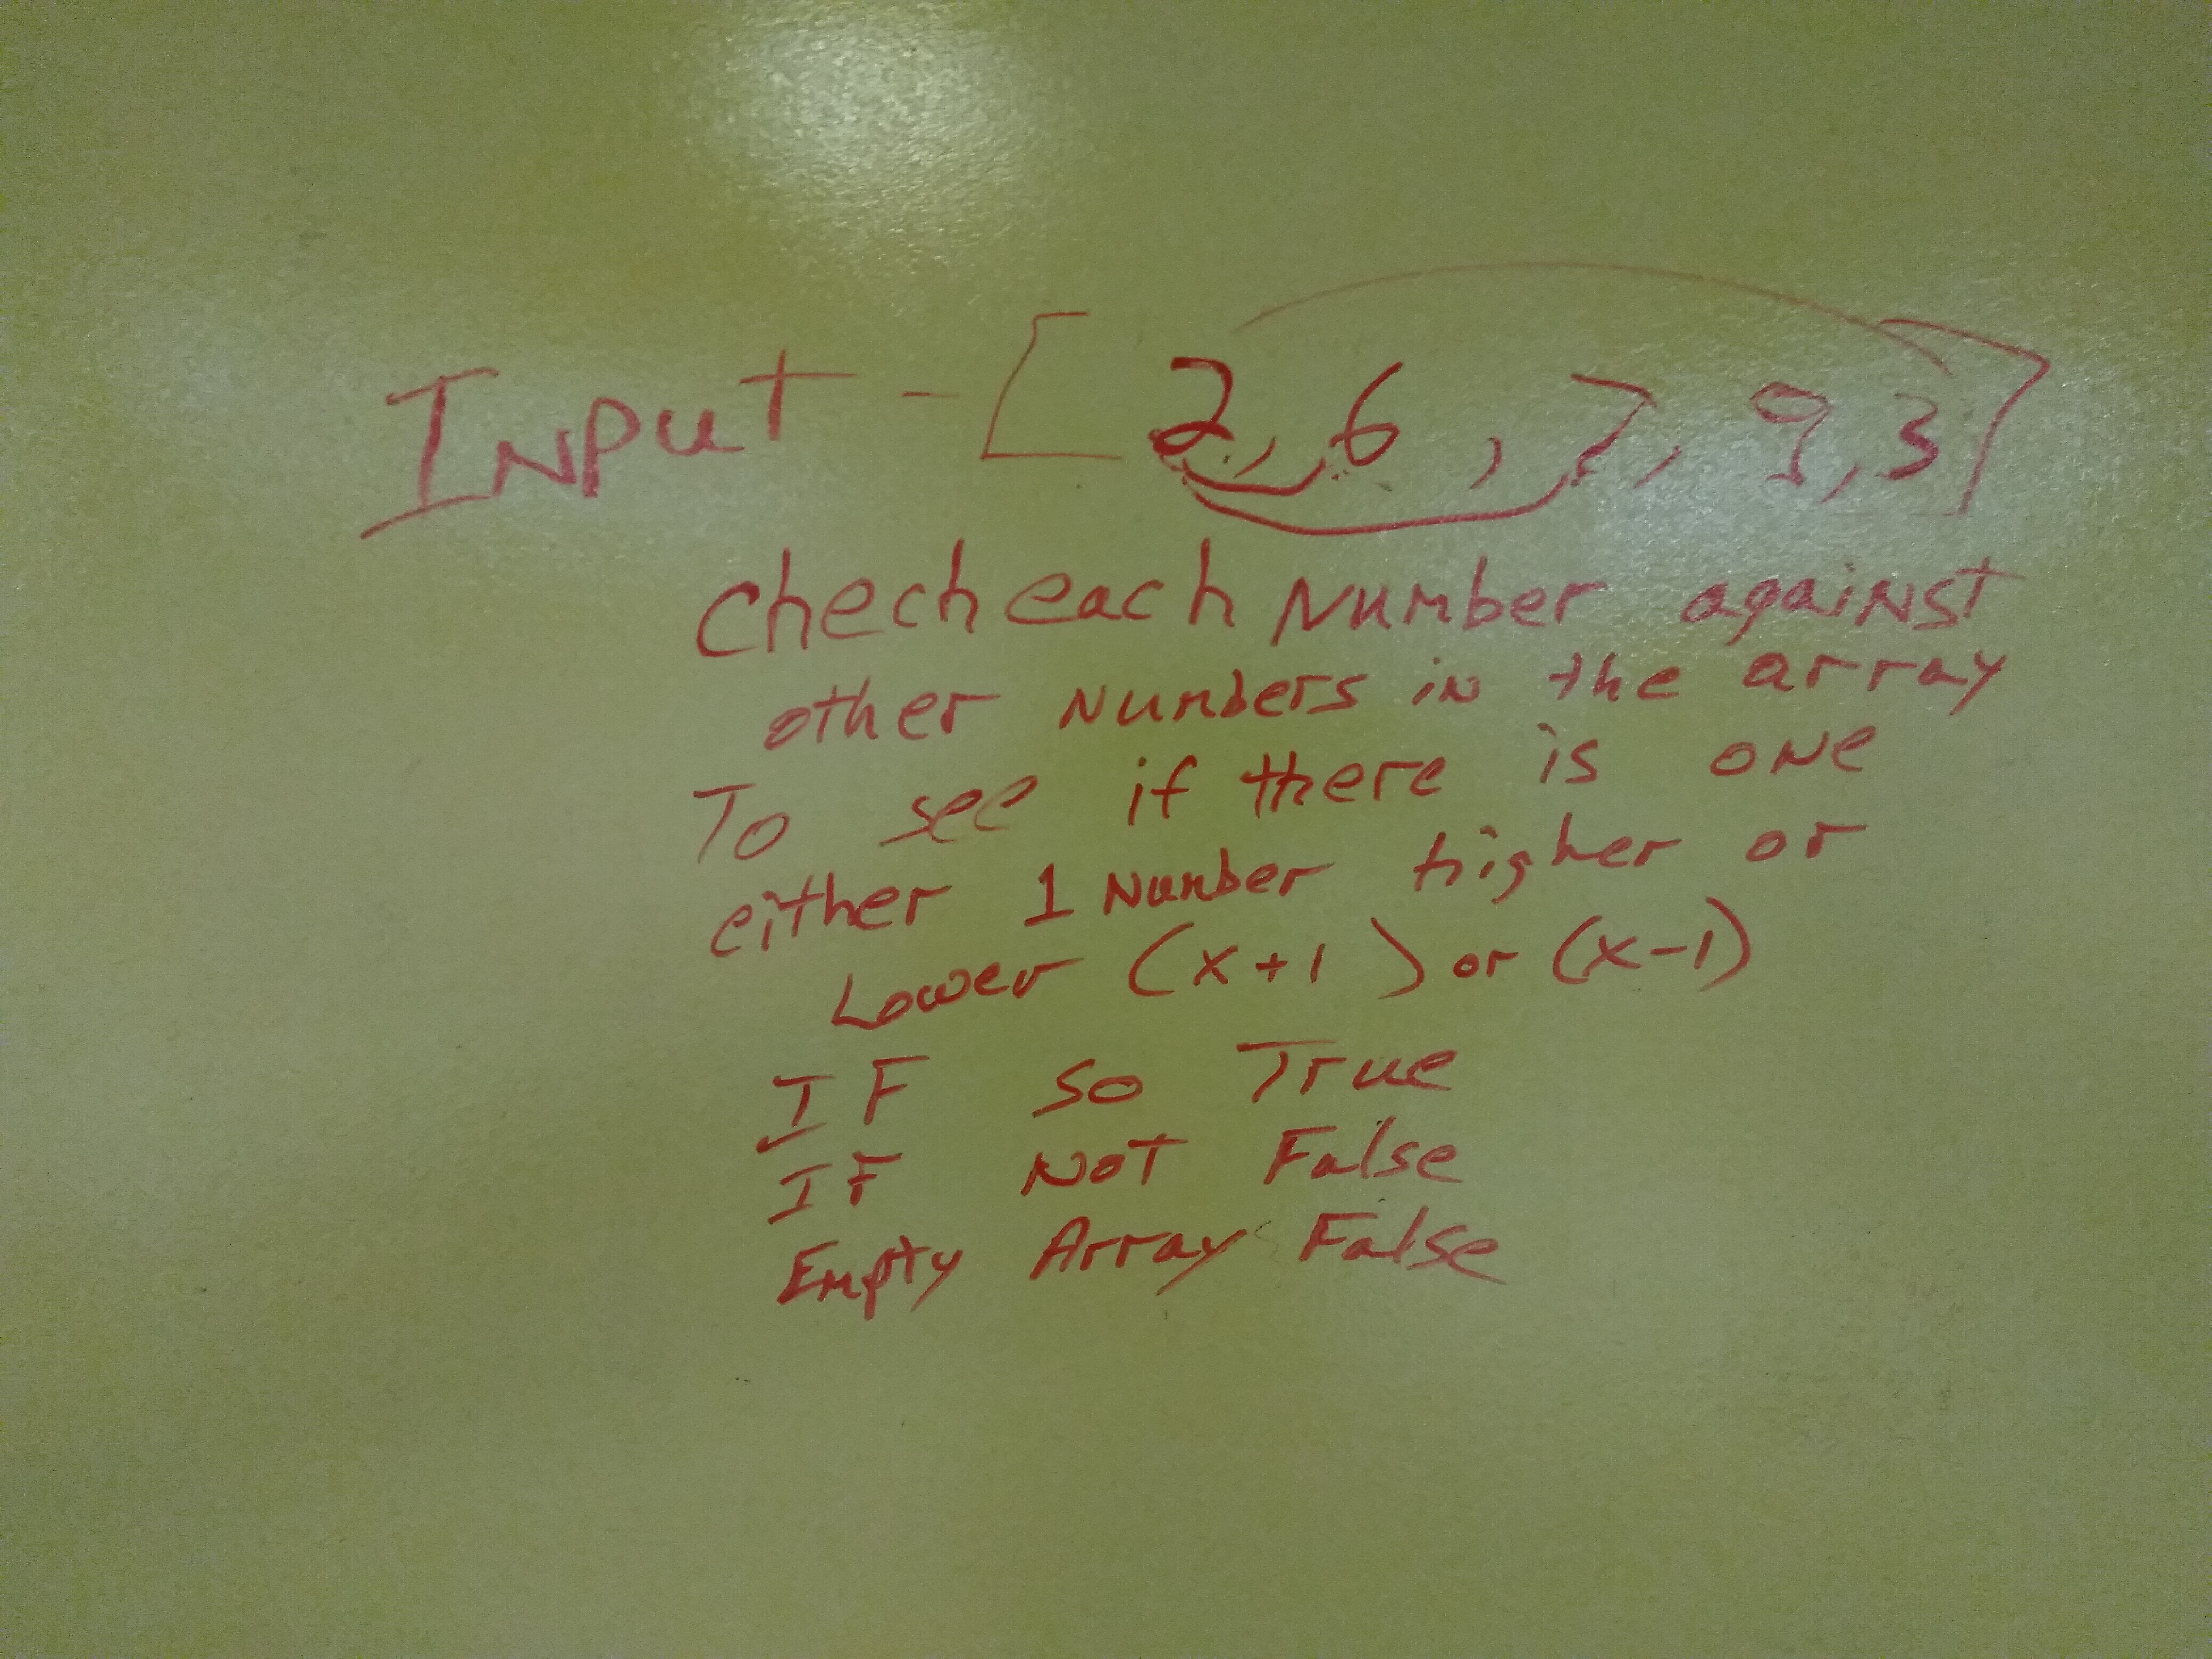 Input - [2, 6, 7, 9, 3]
Check each number against
other numbers in the array
To see if there is one
either 1 number higher or
Lower (x+1) or (x-1)
IF so True
IF Not False
Empty Array False